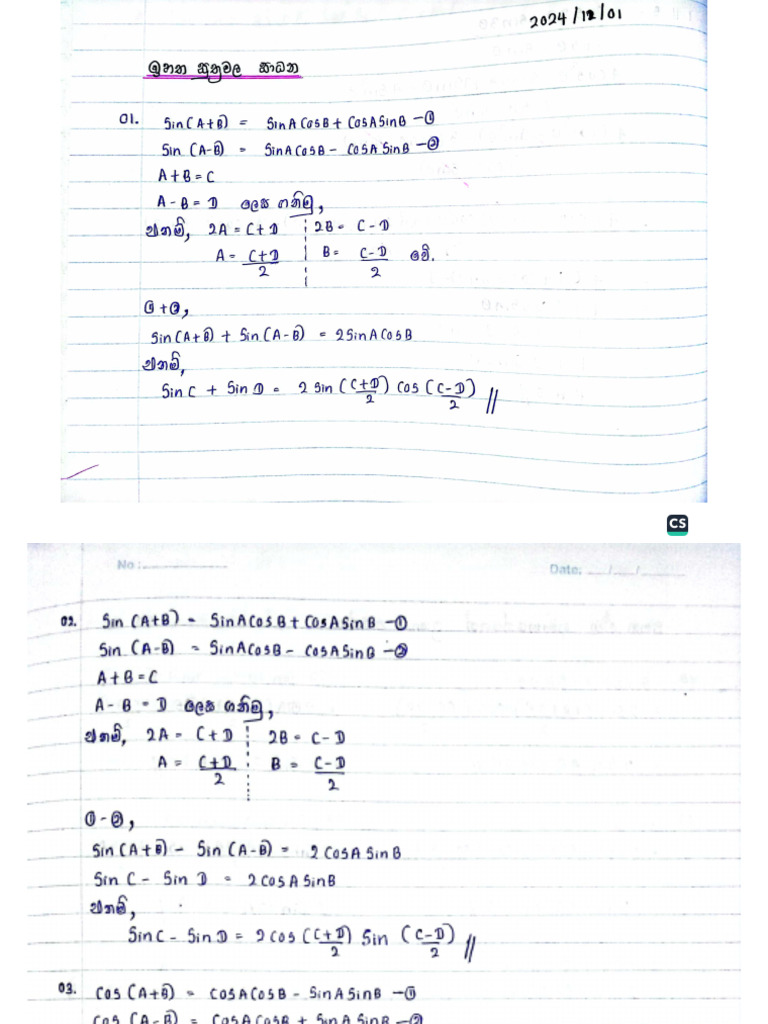 2024/12/01
ඉහත සූත්‍රවල සාධන
01. Sin(A+B) = SinACosB + CosASinB —①
Sin (A-B) = SinACosB - CosA SinB —②
A+B=C
A-B=D ලෙස ගනිමු,
එනම්, 2A = C+D 2B = C-D
A = C+D/2 B = C-D/2 වේ.
①+②,
Sin(A+B) + Sin(A-B) = 2SinACosB
එනම්,
Sin C + Sin D = 2 Sin (C+D/2) Cos (C-D/2) //
CS
No : Date: / /
02. Sin (A+B) = SinACosB + CosASinB —①
Sin (A-B) = SinACosB - CosASinB —②
A+B=C
A-B = D ලෙස ගනිමු,
එනම්, 2A = C+D 2B = C-D
A = C+D/2 B = C-D/2
①-②,
Sin(A+B) - Sin (A-B) = 2 CosA SinB
Sin C - Sin D = 2 CosA SinB
එනම්,
SinC - SinD = 2 Cos (C+D/2) Sin (C-D/2) //
03. Cos (A+B) = CosACosB - SinASinB —①
Cos (A-B) = CosACosB + SinASinB —②